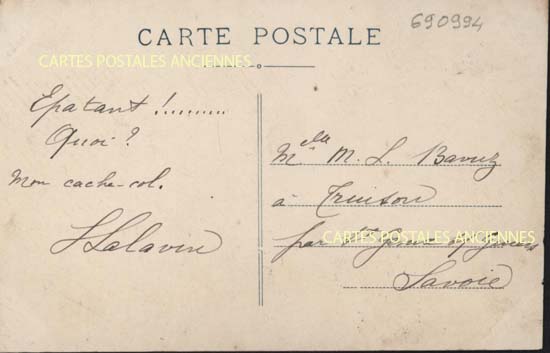 690994
CARTE POSTALE
CARTES POSTALES ANCIENNES
Epatant !.........
Quoi ?
Mon cache-col.
Melle M. L. Bavuz
à
par
CARTES POSTALES ANCIENNES
Savoie